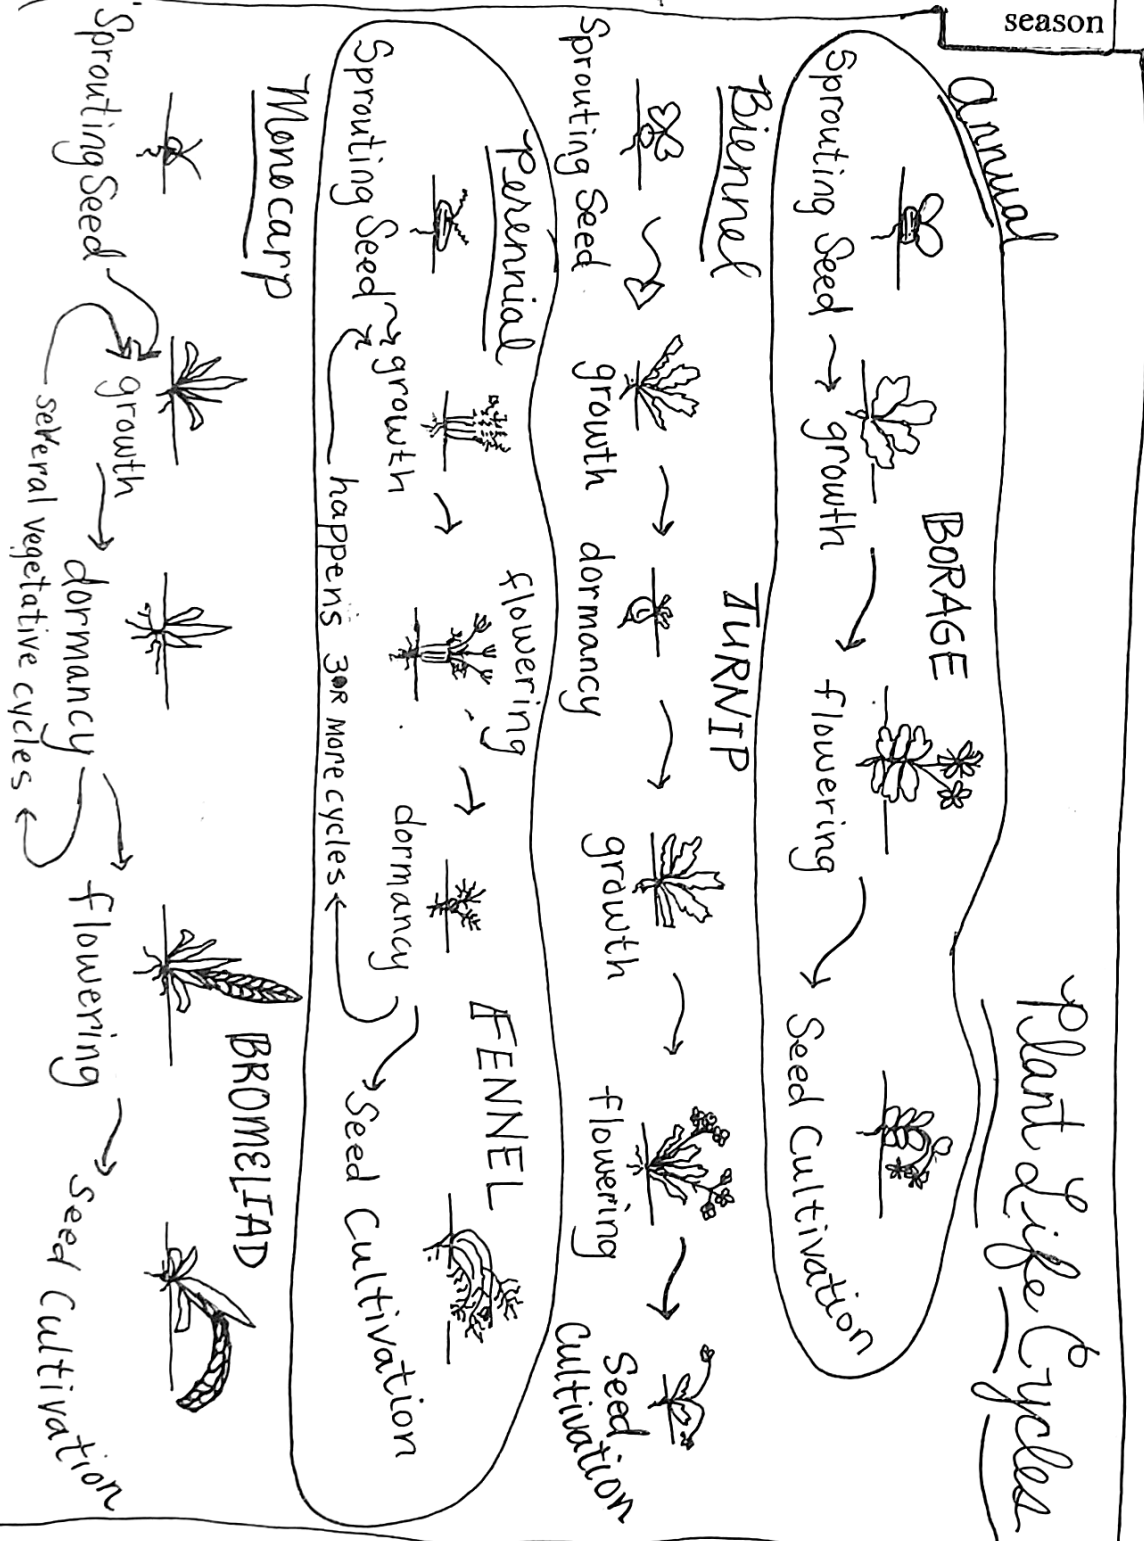 season
Plant Life Cycles
Annual
BORAGE
Sprouting Seed → growth → flowering → Seed Cultivation
Biennel
TURNIP
Sprouting Seed → growth → dormancy → growth → flowering → Seed Cultivation
Perennial
FENNEL
Sprouting Seed → growth → flowering → dormancy → Seed Cultivation
happens 3 OR MORE cycles
Monocarp
BROMELIAD
Sprouting Seed → growth → dormancy → flowering → Seed Cultivation
several vegetative cycles